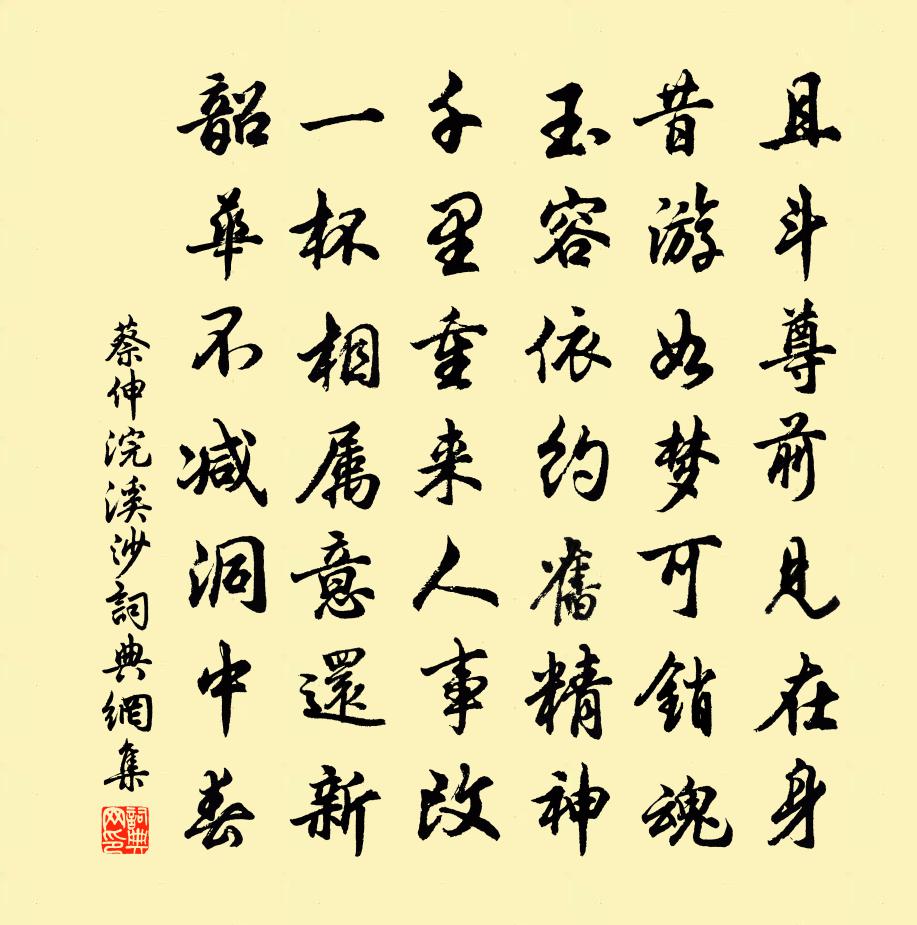 且斗尊前見在身
昔游如梦可銷魂
玉容依約舊精神
千里重来人事改
一杯相属意還新
韶華不减洞中春
蔡伸浣溪沙詞典網集
詞典网印